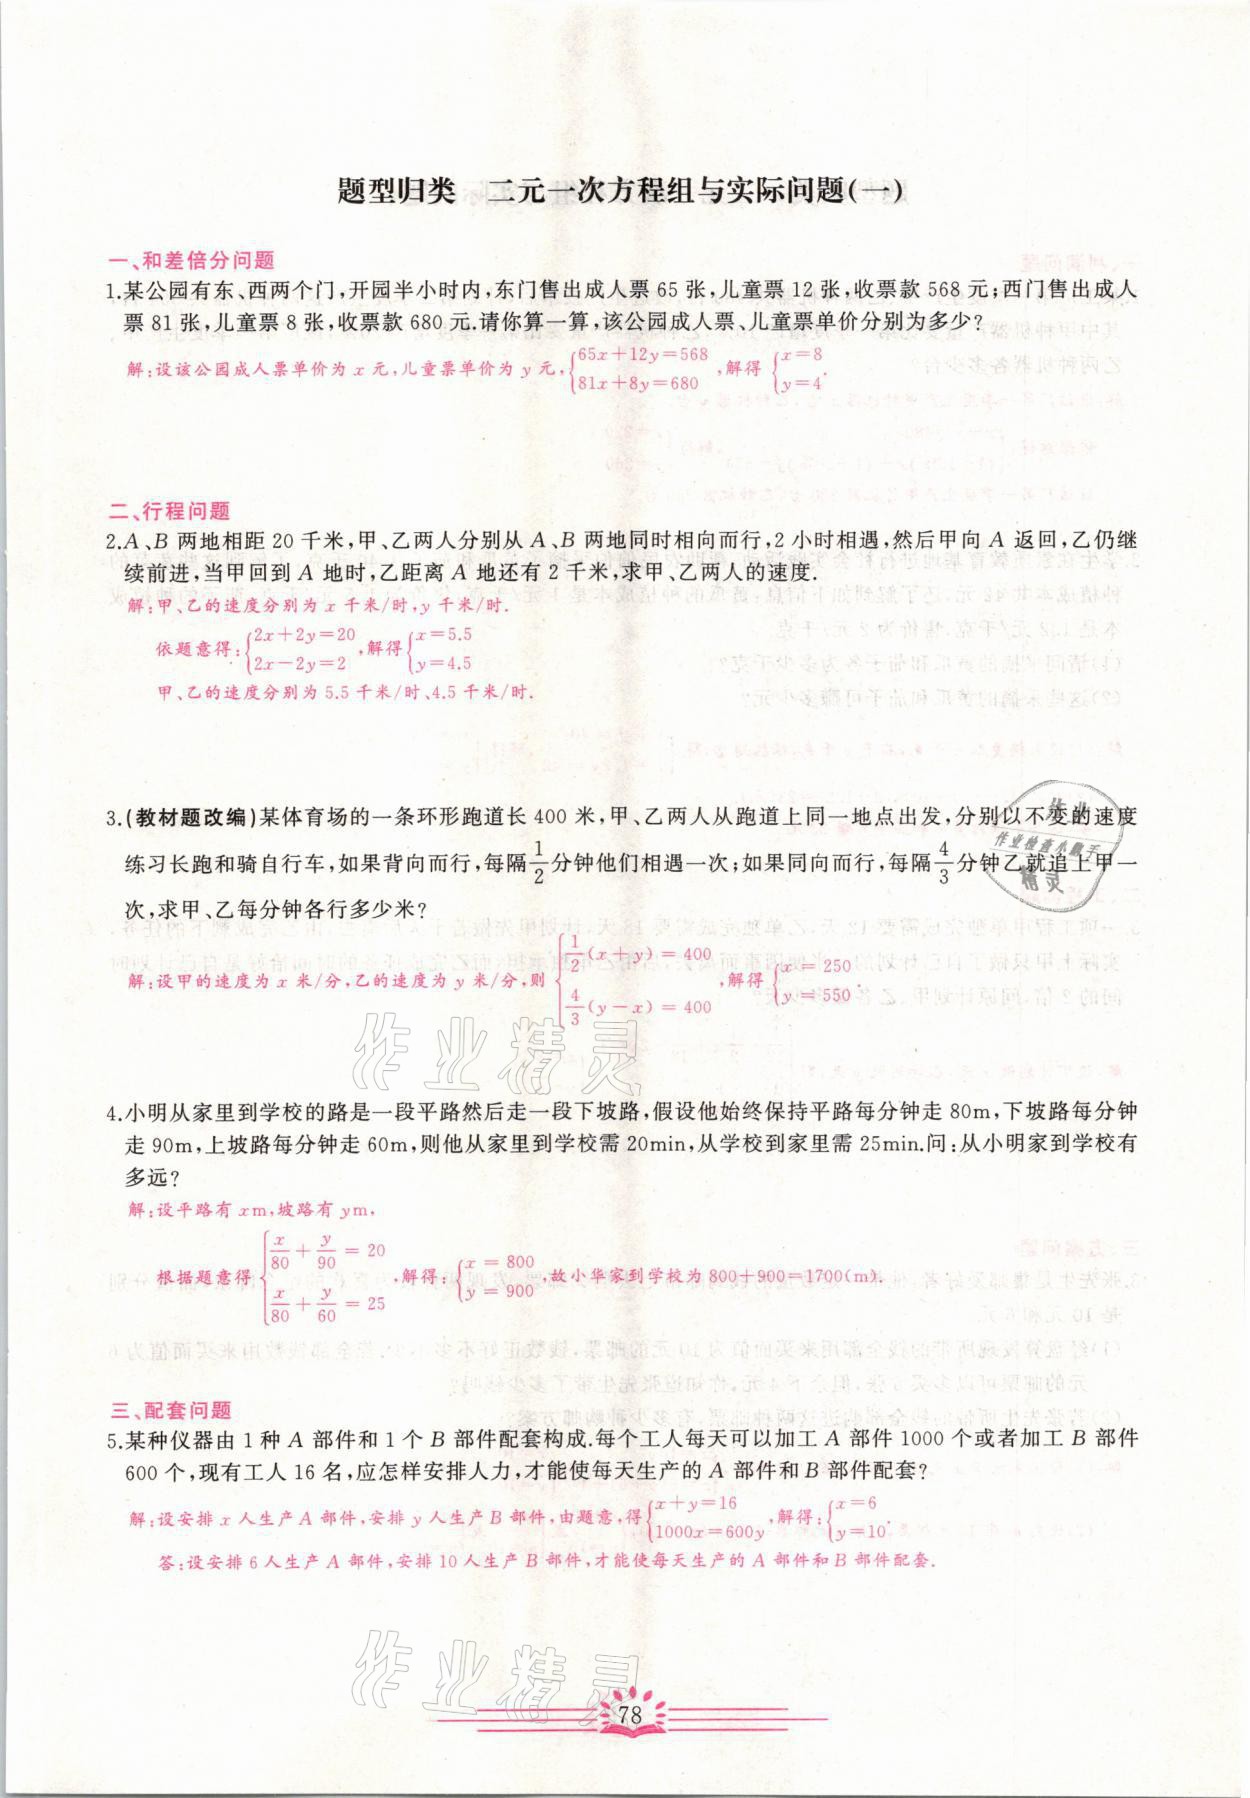 题型归类 二元一次方程组与实际问题(一)
一、和差倍分问题
1.某公园有东、西两个门,开园半小时内,东门售出成人票 65 张,儿童票 12 张,收票款 568 元;西门售出成人
票 81 张,儿童票 8 张,收票款 680 元.请你算一算,该公园成人票、儿童票单价分别为多少?
解:设该公园成人票单价为 x 元,儿童票单价为 y 元,{65x+12y=568 81x+8y=680 ,解得 {x=8 y=4.
二、行程问题
2.A、B 两地相距 20 千米,甲、乙两人分别从 A、B 两地同时相向而行,2 小时相遇,然后甲向 A 返回,乙仍继
续前进,当甲回到 A 地时,乙距离 A 地还有 2 千米,求甲、乙两人的速度.
解:甲、乙的速度分别为 x 千米/时,y 千米/时.
依题意得:{2x+2y=20 2x-2y=2 ,解得{x=5.5 y=4.5
甲、乙的速度分别为 5.5 千米/时、4.5 千米/时.
3.(教材题改编)某体育场的一条环形跑道长 400 米,甲、乙两人从跑道上同一地点出发,分别以不变的速度
练习长跑和骑自行车,如果背向而行,每隔1/2分钟他们相遇一次;如果同向而行,每隔4/3分钟乙就追上甲一
次,求甲、乙每分钟各行多少米?
解:设甲的速度为 x 米/分,乙的速度为 y 米/分,则{1/2(x+y)=400 4/3(y-x)=400 ,解得{x=250 y=550.
4.小明从家里到学校的路是一段平路然后走一段下坡路,假设他始终保持平路每分钟走 80m,下坡路每分钟
走 90m,上坡路每分钟走 60m,则他从家里到学校需 20min,从学校到家里需 25min.问:从小明家到学校有
多远?
解:设平路有 xm,坡路有 ym,
根据题意得{x/80+y/90=20 x/80+y/60=25 ,解得:{x=800 y=900 ,故小华家到学校为 800+900=1700(m).
三、配套问题
5.某种仪器由 1 种 A 部件和 1 个 B 部件配套构成.每个工人每天可以加工 A 部件 1000 个或者加工 B 部件
600 个,现有工人 16 名,应怎样安排人力,才能使每天生产的 A 部件和 B 部件配套?
解:设安排 x 人生产 A 部件,安排 y 人生产 B 部件,由题意,得{x+y=16 1000x=600y ,解得:{x=6 y=10.
答:设安排 6 人生产 A 部件,安排 10 人生产 B 部件,才能使每天生产的 A 部件和 B 部件配套.
78
作业
作业检查小助手
精灵
作业精灵
作业精灵